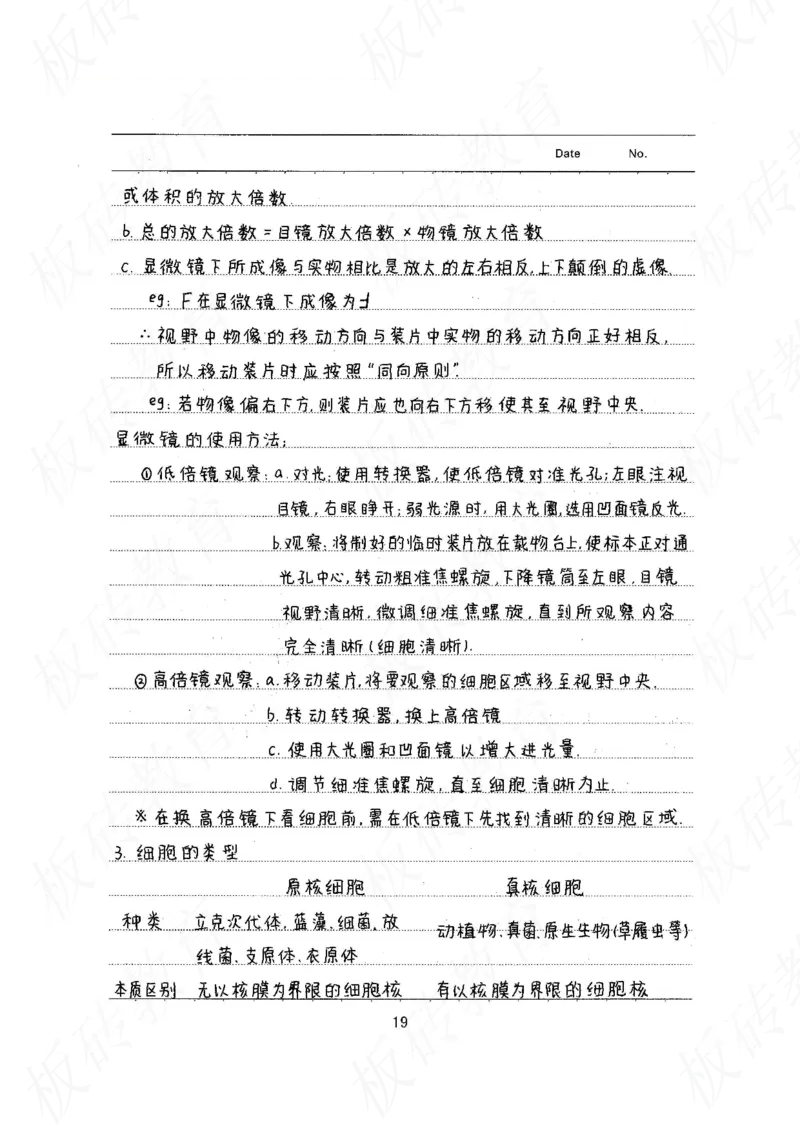 Date No.
或体积的放大倍数
b. 总的放大倍数 = 目镜放大倍数 × 物镜放大倍数
c. 显微镜下所成像与实物相比是放大的左右相反,上下颠倒的虚像.
eg: F在显微镜下成像为Ⅎ
∴ 视野中物像的移动方向与装片中实物的移动方向正好相反,
所以移动装片时应按照“同向原则”.
eg: 若物像偏右下方,则装片应也向右下方移使其至视野中央.
显微镜的使用方法:
①低倍镜观察: a. 对光: 使用转换器,使低倍镜对准光孔;左眼注视
目镜,右眼睁开;弱光源时,用大光圈,选用凹面镜反光.
b.观察: 将制好的临时装片放在载物台上,使标本正对通
光孔中心,转动粗准焦螺旋,下降镜筒至左眼,目镜
视野清晰,微调细准焦螺旋,直到所观察内容
完全清晰(细胞清晰).
②高倍镜观察: a.移动装片,将要观察的细胞区域移至视野中央.
b. 转动转换器,换上高倍镜
c. 使用大光圈和凹面镜以增大进光量.
d. 调节细准焦螺旋,直至细胞清晰为止.
※ 在换高倍镜下看细胞前,需在低倍镜下先找到清晰的细胞区域.
3. 细胞的类型
原核细胞 真核细胞
种类 立克次代体,蓝藻、细菌、放 动植物、真菌、原生生物(草履虫等)
线菌、支原体、衣原体
本质区别 无以核膜为界限的细胞核 有以核膜为界限的细胞核
19
板砖教育